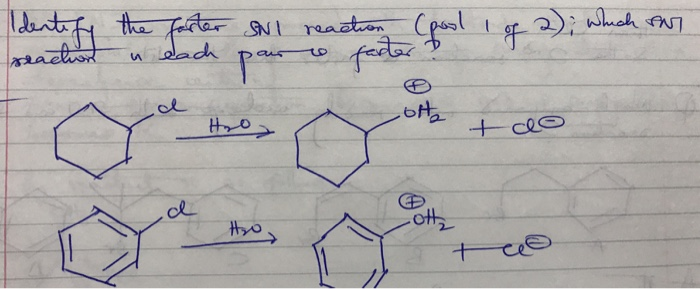 Identify the faster SN1 reaction (pool 1 of 2); which SN1
reaction in each pair is faster?
Cl H2O ⊕ OH2 + Cl⊖
Cl H2O ⊕ OH2 + Cl⊖